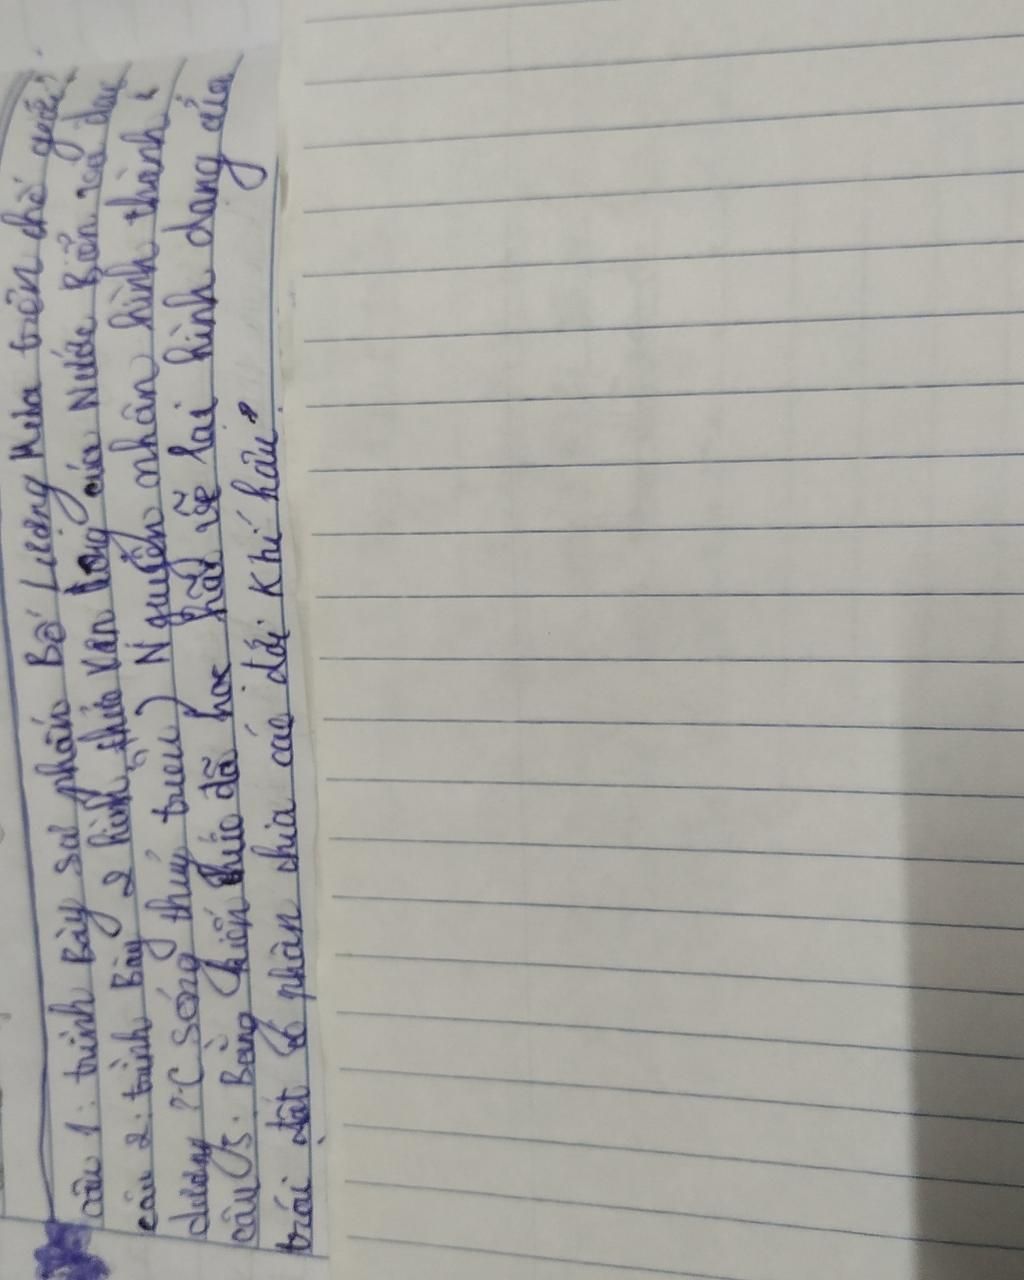 câu 1: trình Bày sự phân Bố Lượng Mưa trên thế giới?
câu 2: trình Bày 2 hình thức vận động của Nước Biển và đại
dương ? ( Sóng thuỷ triều ) Nguyên nhân hình thành ?
câu 3: Bằng kiến thức đã học hãy vẽ lại hình dạng của
trái đất phân chia các đới khí hậu ?